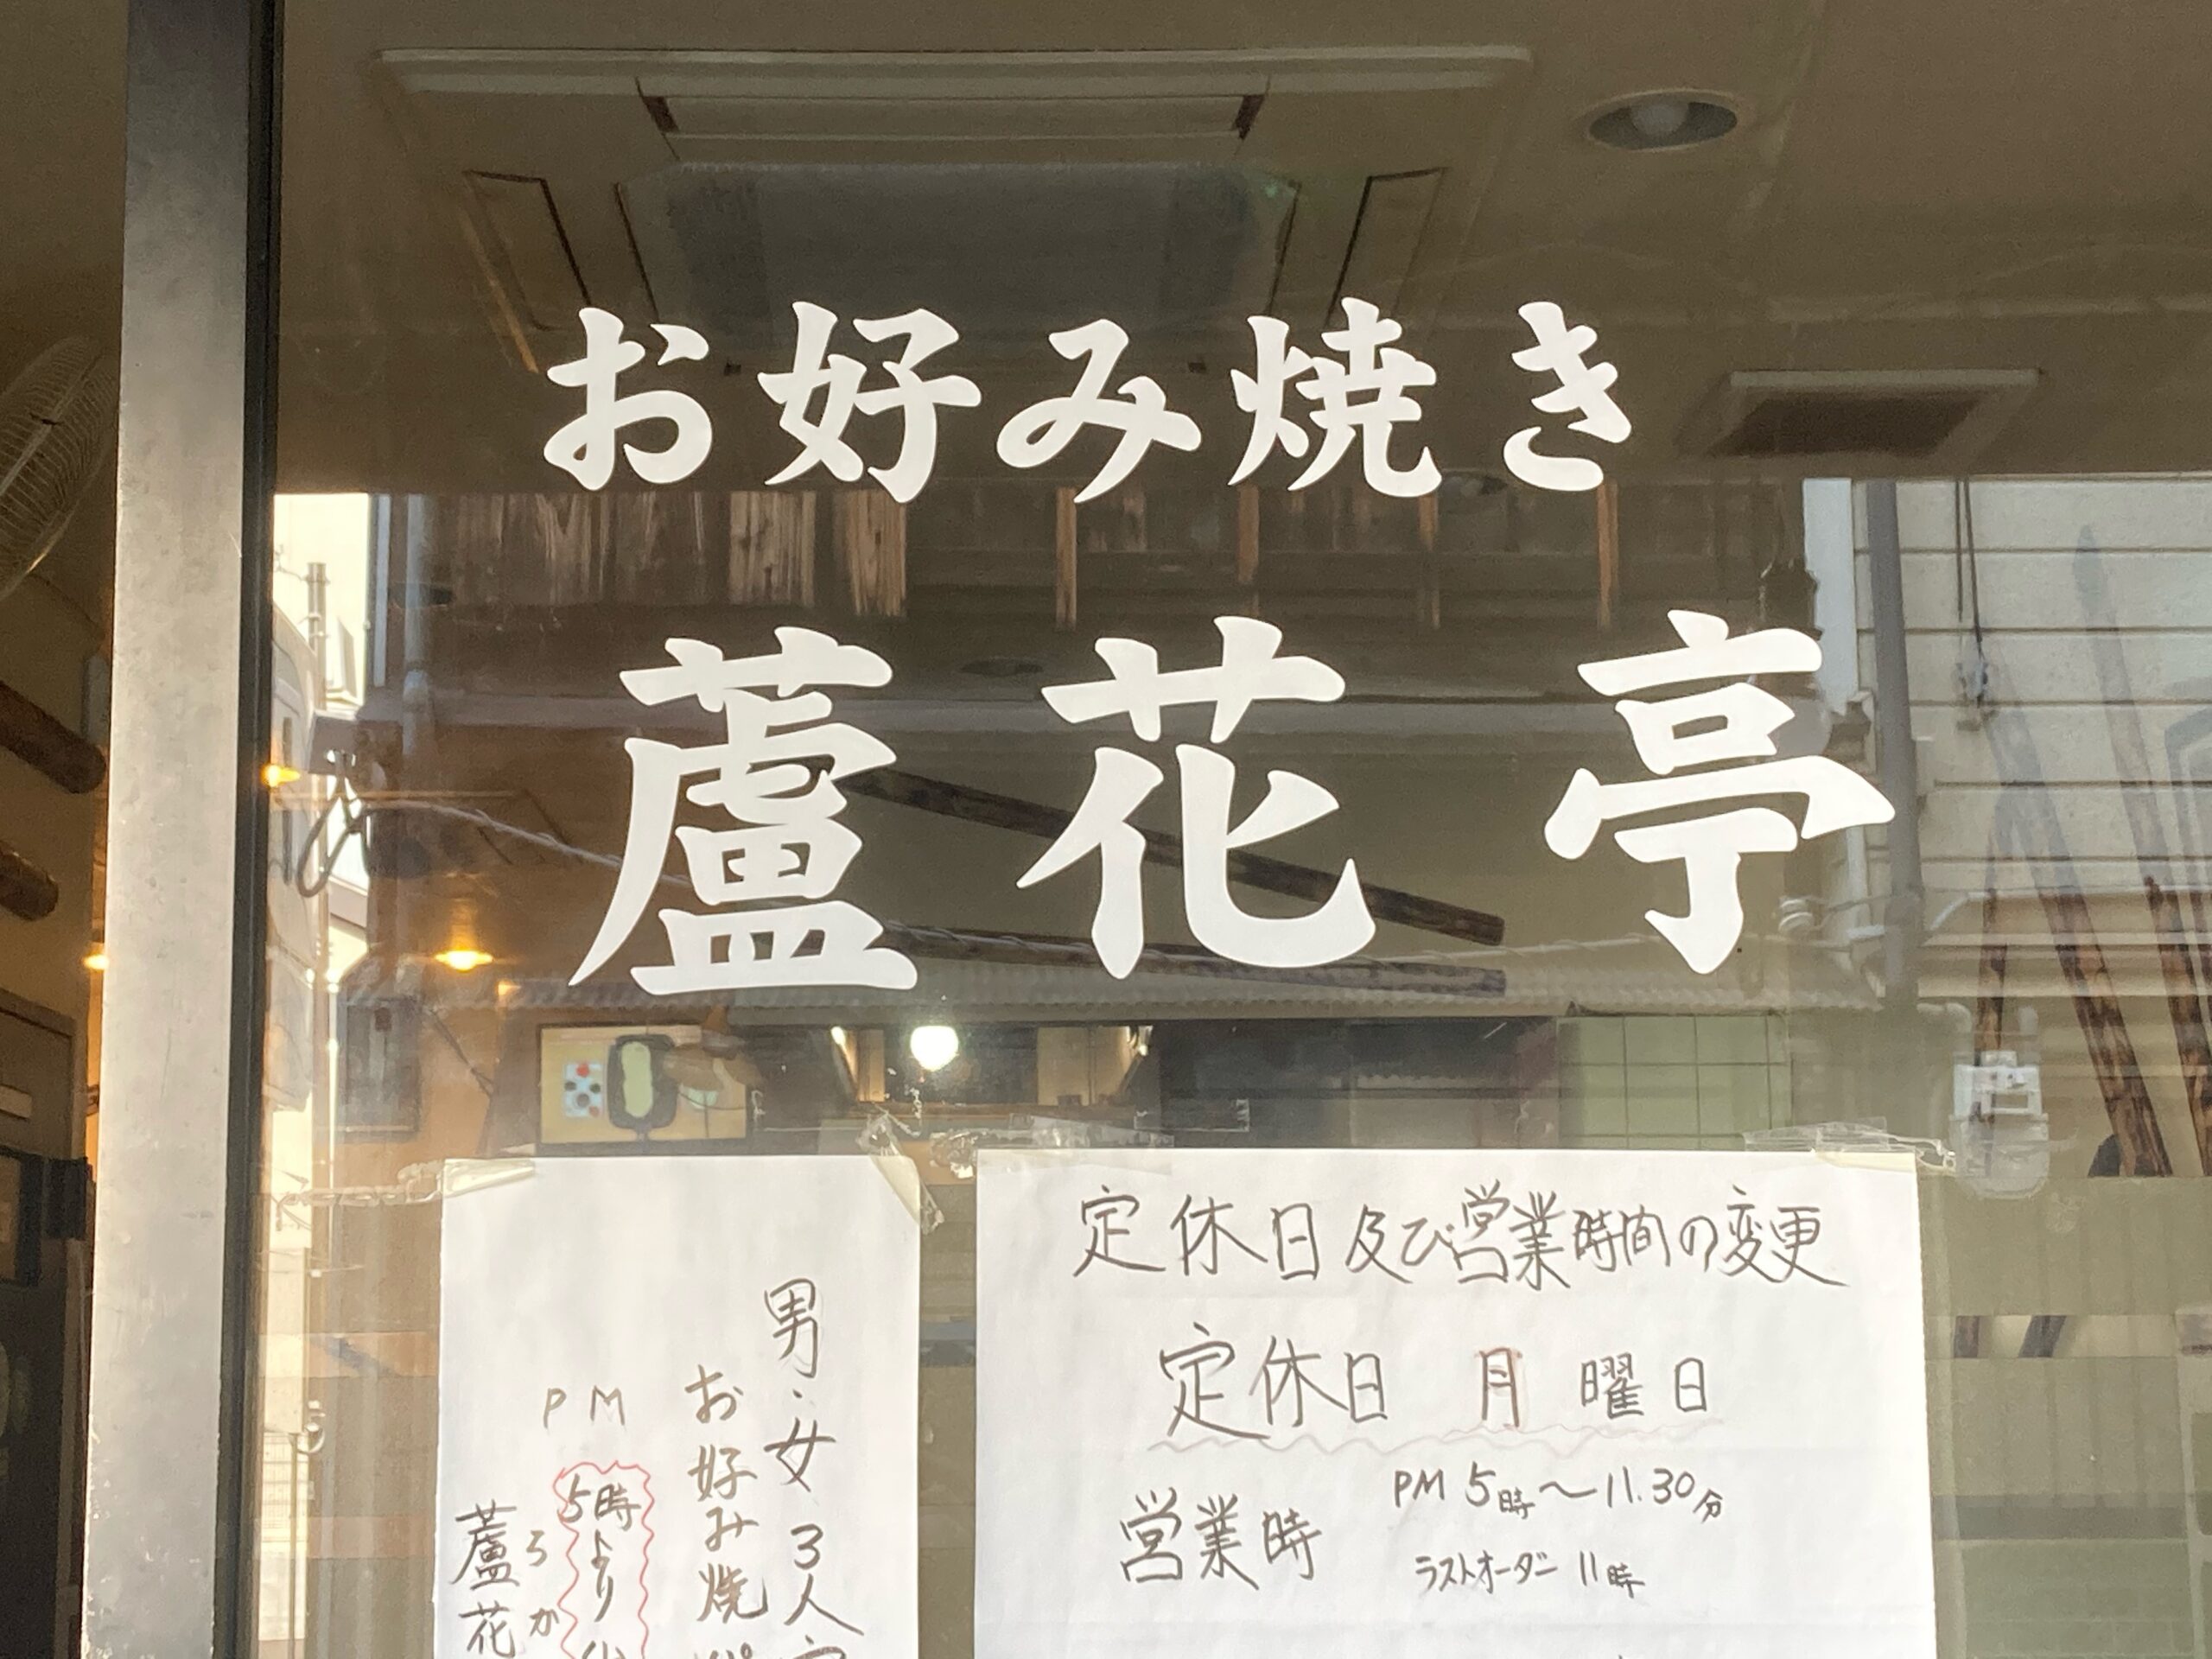 お好み焼き
蘆花亭
定休日及び営業時間の変更
定休日 月曜日
営業時 PM 5時〜11.30分
ラストオーダー 11時
男・女3人
お好み焼
PM
5時より
ろか
蘆花